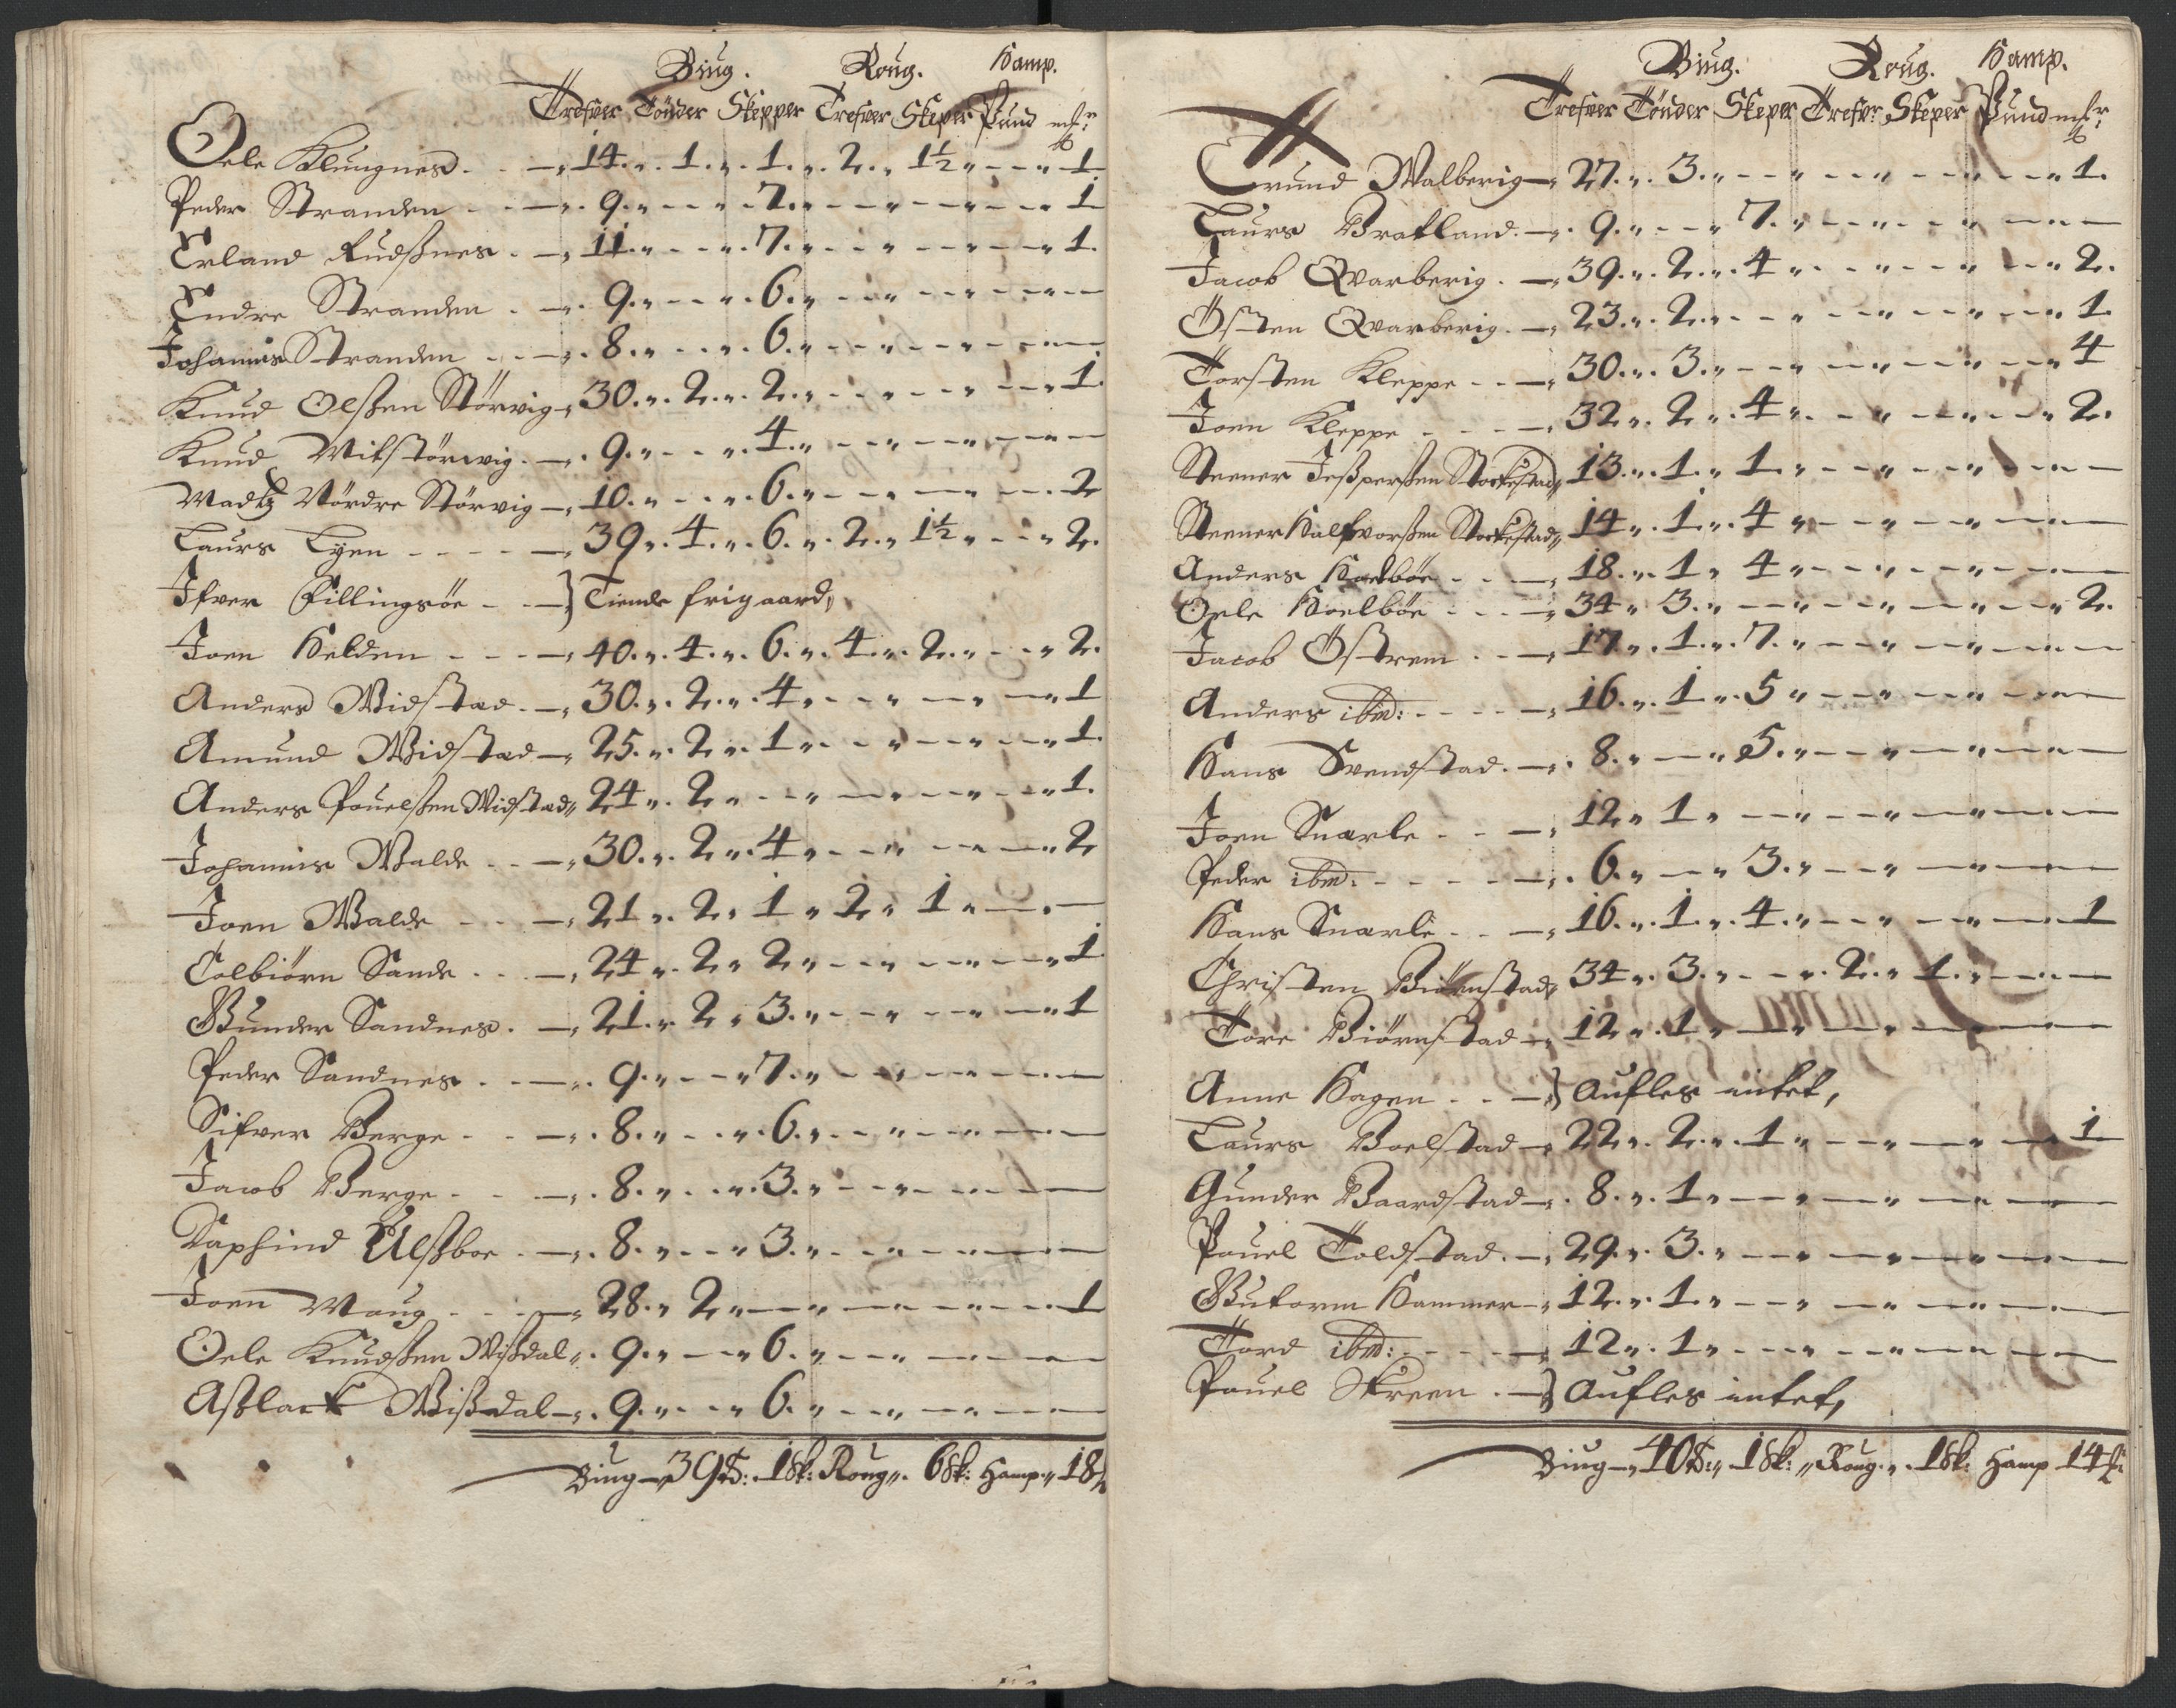 Biug. Roug. Hamp.
Trefver Tönder Skepper Trefver Skeper Pund
Oele Klungnes. . — „ 14. „ . 1. „ . 1. „ . 2. „ 1½ „ - - „ 1
Peder Stranden - - — „ . 9. „ - - „ . 7. „ - - „ - - „ - - „ 1
Erland Rudßnes. . — „ 11. „ - - „ . 7. „ - - „ - - „ - - „ 1.
Endre Stranden . — „ . 9. „ - - „ . 6. „ - - „ - - „ - - „ —
Johannis Stranden . . — „ . 8. „ - - „ . 6. „ - - „ - - „ - - „ —
Knud Olßen Störvig „ 30. „ . 2. „ . 2. „ - - „ - - „ - - „ 1.
Knud Mitstörvig. — „ . 9. „ - - „ . 4. „ - - „ - - „ - - „ —
Madtz Nördre Störvig — „ 10. „ - - „ . 6. „ - - „ - - „ - - 2
Laurs Lyen - - - - — „ 39 „ . 4. „ . 6. „ . 2. „ 1½ „ - - „ 2.
Ifver Eillingsöe - - — } Tiende frigaard,
Joen Helden - - - — „ 40. „ . 4. „ . 6. „ . 4. „ . 2. „ - - „ 2.
Anders Widstad. — „ 30. „ . 2. „ . 4 „ - - „ - - „ - - „ 1
Amund Widstad — „ 25. „ . 2 „ . 1 „ - - „ - - „ - - „ 1.
Anders Pouelßen Widstad „ 24 „ . 2 „ - - „ - - „ - - „ - - „ 1.
Johannis Walde . . — „ 30. „ . 2 „ . 4 „ - - „ - - „ - - „ 2
Joen Walde - - - — „ 21 „ . 2 „ 1 „ 2 „ 1 „ — „ —
Tolbiörn Sande . . — „ 24 „ . 2 „ 2 „ - - „ - - „ - - „ 1
Gunder Sandnes. — „ 21. „ . 2 „ 3. „ - - „ - - „ - - „ 1
Peder Sandnes. . — „ . 9. „ - - „ 7. „ - - „ - - „ - - „ —
Sifver Berge - - — „ . 8. „ - - „ . 6. „ - - „ - - „ - - „ —
Jacob Berge - - - — „ . 8. „ - - „ . 3. „ - - „ - - „ - - „ —
Daphind Ulßboe . — „ . 8. „ - - „ 3. „ - - „ - - „ - - „ —
Joen Moug . . - — „ 28. „ 2 „ — „ — „ - - „ - - 1
Oele Knudßen Wißdal „ . 9. „ - - „ 6. „ - - „ - - „ — „ —
Aßlack Wißdal — „ . 9. „ - - „ 6. „ - - „ - - „ - - „ —
Biug — „ 39 td: . 1 sk: Roug „ . 6 sk: Hamp. „ 18
Biug. Roug. Hamp.
Trefver Tönder Skeper Trefvr: Skeper Pund
Trund Walberig — „ 27. „ . 3. „ - - „ - - „ - - „ - - „ 1.
Laurs Bratland. — „ . 9. „ - - „ 7. „ - - „ - - „ — „ —
Jacob Qvarberig. — „ 39. „ . 2. „ . 4 „ - - „ - - „ - - „ 2.
Östen Qvarberig. — „ 23. „ . 2. „ - - „ - - „ - - „ - - „ 1
Torsten Kleppe - - — „ 30. „ . 3. „ - - „ - - „ - - „ - - „ 4
Joen Kleppe - - - — „ 32 „ . 2 „ . 4 „ - - „ - - „ - - „ 2.
Steener Jeßperßen Stockestad „ 13. „ . 1. „ 1. „ - - „ - - „ - - „ —
Steener Halfvorßen Stockestad „ 14 „ . 1. „ . 4 „ - - „ - - „ - - „ —
Anders Hoelböe - - — „ 18. „ . 1 „ 4 „ - - „ - - „ - - „ —
Oele Hoelböe - - - — „ 34 „ 3. „ - - „ - - „ - - „ - - „ 2.
Jacob Östrem . . — „ 17 „ . 1. „ . 7. „ - - „ - - „ - - „ —
Anders ibid: - - - - — „ 16. „ . 1 „ . 5 „ - - „ - - „ - - „ —
Hans Svendstad. — „ . 8. „ — „ 5. „ - - „ - - „ - - „ —
Joen Snarle - - — „ 12 „ 1 „ - - „ - - „ - - „ —
Peder ibid: - - - - — „ . 6. „ — „ 3. „ - - „ - - „ - - „ —
Hans Snarle . . — „ 16. „ . 1 „ . 4. „ - - „ - - „ - - „ 1
Christen Biörnstad „ 34 „ . 3. „ - - „ . 2. „ 1. „ - - „ —
Tore Biörnstad — „ 12 „ . 1 „ — „ — „ - - „ —
Anne Hagen . . — } Aufles intet,
Laurs Boelstad — „ 22 „ . 2. „ . 1 „ - - „ — „ — „ 1
Gunder Baardstad — „ . 8. „ . 1 „ — „ — „ — „ —
Pouel Toldstad. — „ 29. „ . 3. „ - - „ — „ — „ —
Gutorm Hammer — „ 12. „ . 1. „ - - „ — „ - - „ —
Tord ibid: - - - — „ 12 „ . 1 „ - - „ - - „ - - „ —
Pouel Skreen . — } Aufles intet,
Biug — „ 40 td: „ 1 sk: „ Roug. „ . 1 sk: Hamp 14